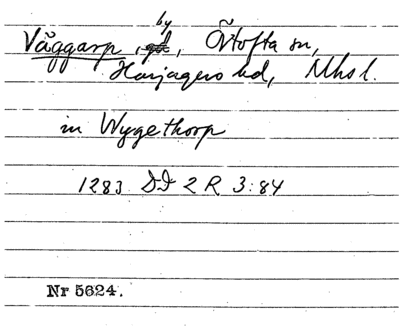 by
Väggarp, Östofta sn,
Harjagers hd, Mhs l.
in Wygethorp
1283 DD 2 R 3:84
Nr 5624.